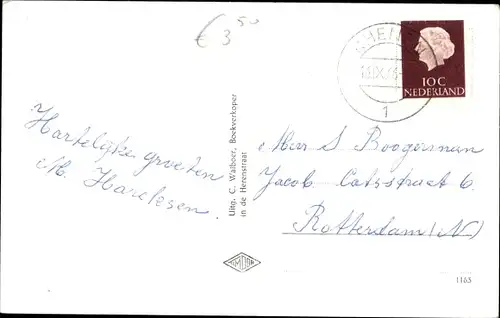 € 3⁵⁰
10 C
NEDERLAND
1
Hartelijke groeten
M. Harclesen.
Uitg. C. Walboer, Boekverkoper
in de Herenstraat
Mevr S Boogerman
Jacob Catsstraat 6.
Rotterdam (N)
1163